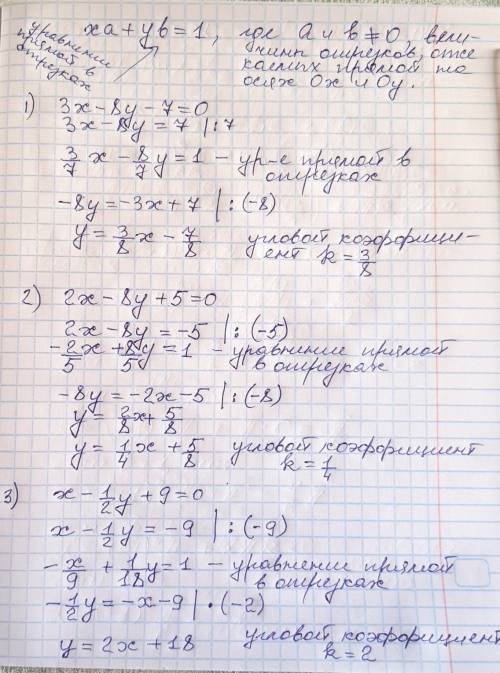 xa + yb = 1, где a и b ≠ 0, вели-
чины отрезков, отсе
каемых прямой на
осях Ox и Oy.
уравнение
прямой в
отрезках
1) 3x - 8y - 7 = 0
3x - 8y = 7 |: 7
3/7 x - 8/7 y = 1 - ур-е прямой в
отрезках
-8y = -3x + 7 | : (-8)
y = 3/8 x - 7/8 угловой коэффици-
ент k = 3/8
2) 2x - 8y + 5 = 0
2x - 8y = -5 | : (-5)
-2/5 x + 8/5 y = 1 - уравнение прямой
в отрезках
-8y = -2x - 5 | : (-8)
y = 2/8 x + 5/8
y = 1/4 x + 5/8 угловой коэффициент
k = 1/4
3) x - 1/2 y + 9 = 0
x - 1/2 y = -9 | : (-9)
-x/9 + 1/18 y = 1 - уравнение прямой
в отрезках
-1/2 y = -x - 9 | · (-2)
y = 2x + 18 угловой коэффициент
k = 2